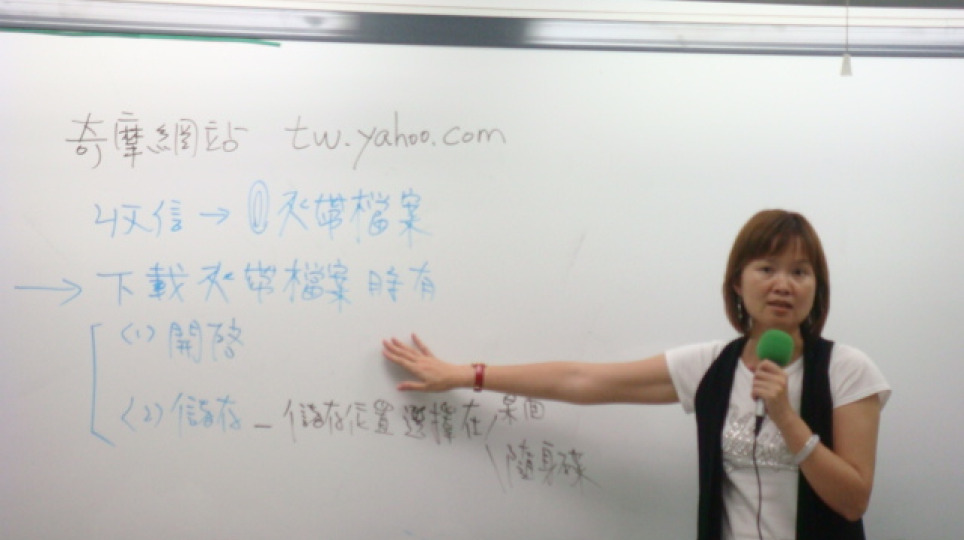 奇摩網站 tw.yahoo.com
收信→📎夾帶檔案
→下載夾帶檔案時有
(1)開啓
(2)儲存－儲存位置選擇在/桌面
\隨身碟